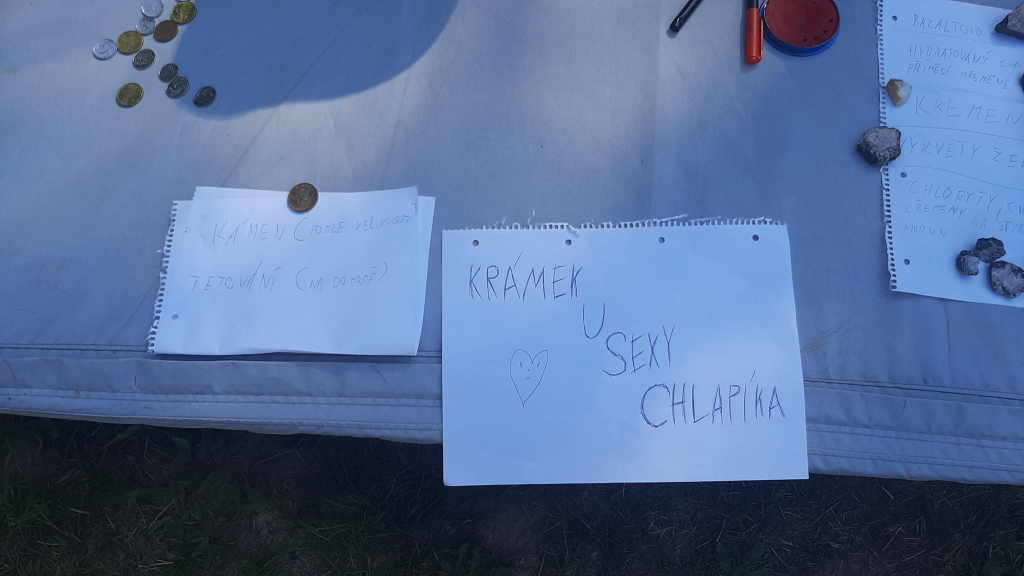 KÁMEN (PODLE VELIKOSTI)
TETOVÁNÍ (NA DOHODĚ)
KRÁMEK
U
SEXY
CHLAPÍKA
BAZALTOID
HYDRATOVANÝ
PŘÍMĚSÍ KŘEMENE
KŘEMEN
VÝKVĚTY
CHLORYTY,
KŘEMENY NA
HORNIN